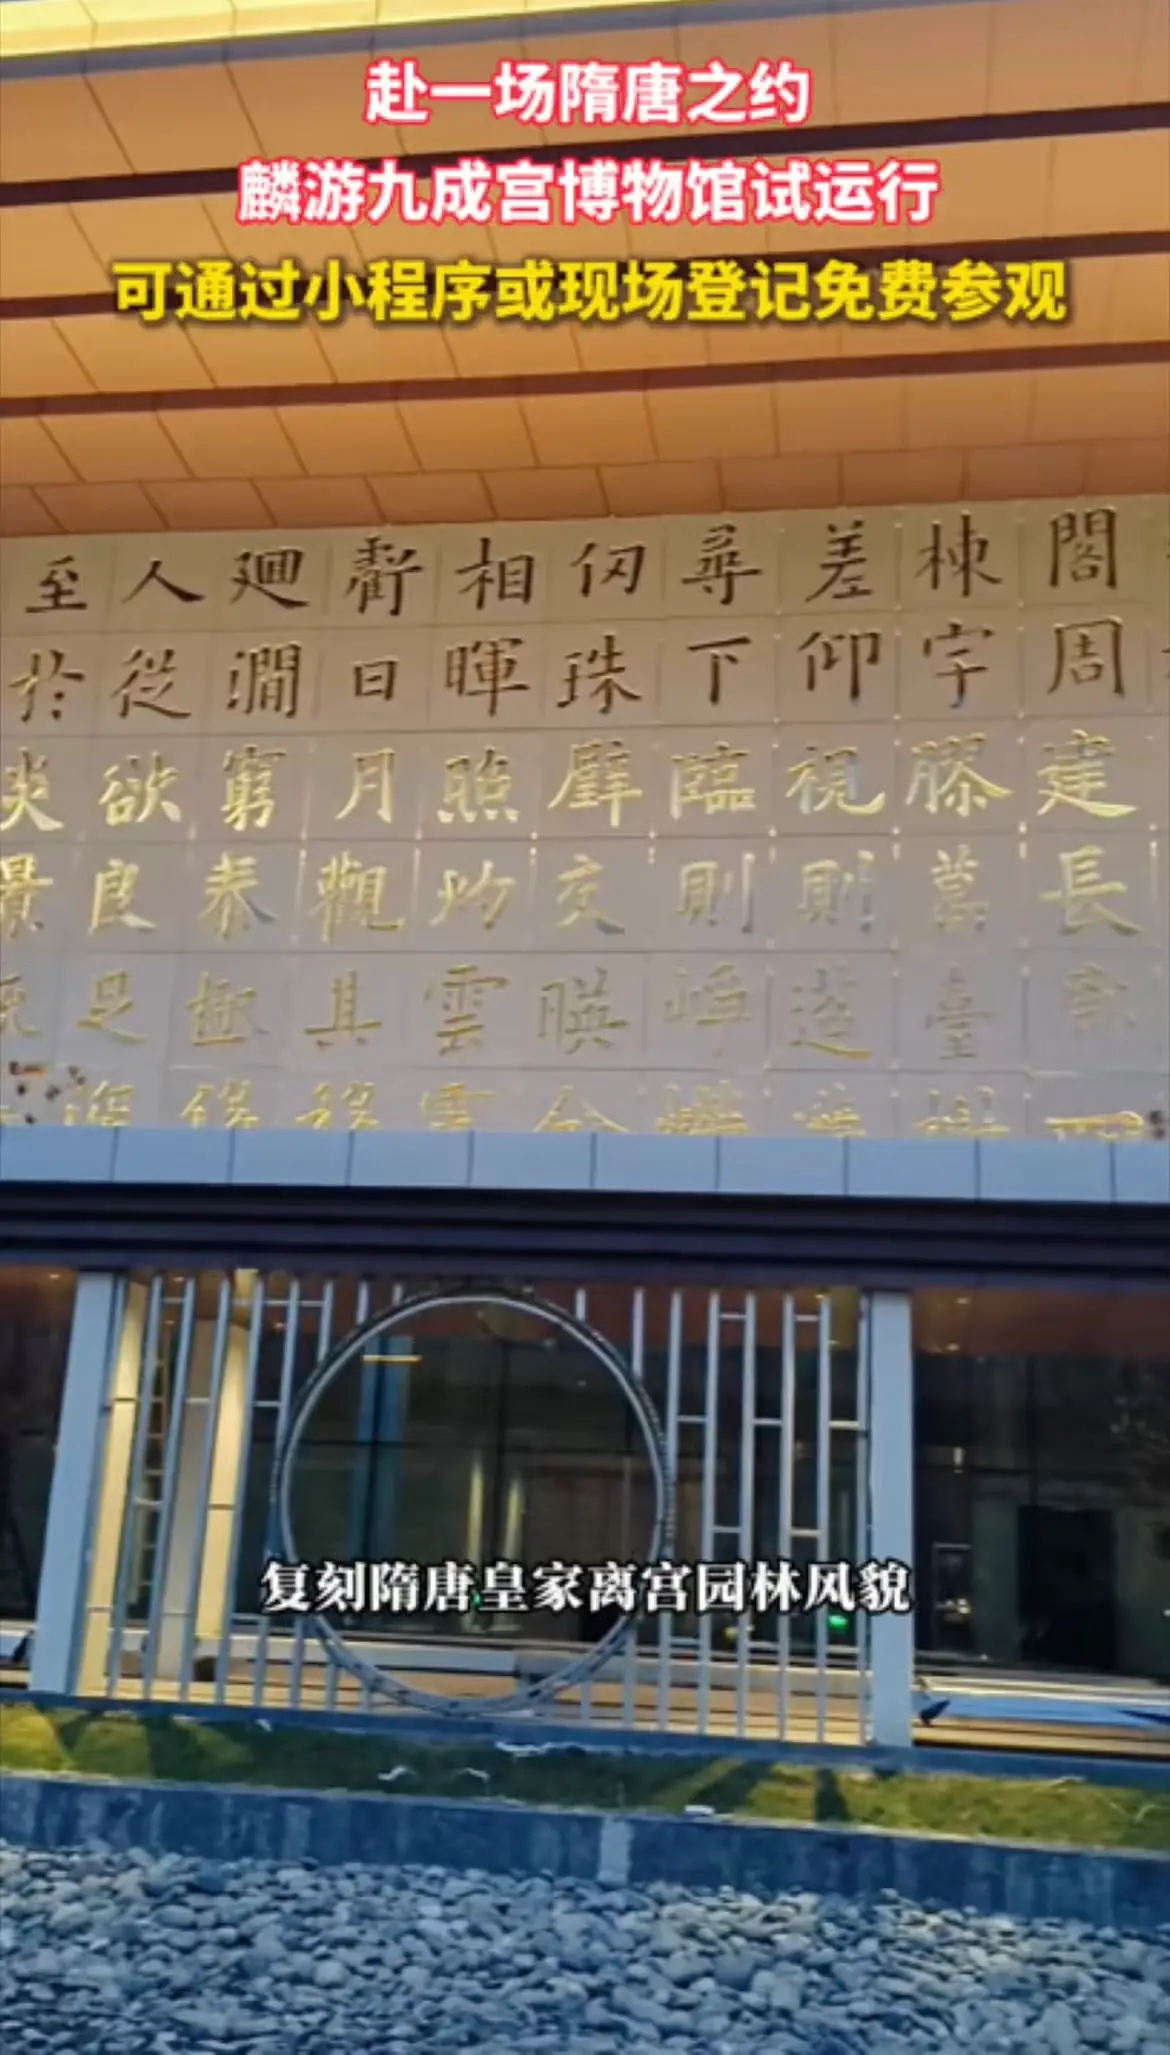 赴一场隋唐之约
麟游九成宫博物馆试运行
可通过小程序或现场登记免费参观
閣周建長
棟宇膠葛臺榭
差仰視則迢
尋下臨則崢嶸
仞珠璧交暎金
相暉照灼雲霞
虧日月觀其移
廻澗窮泰極侈
人從欲良足深
至於炎景
复刻隋唐皇家离宫园林风貌